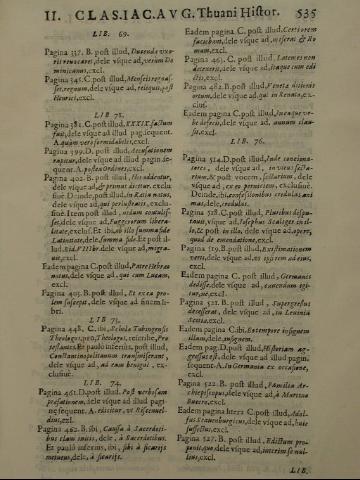 II. CLAS. IAC. AVG. Thuani Histor. 535
LIB. 69.
Pagina 337. B. post illud,
dele vsque ad, verùm Do
minicanus, excl.
Pagina 345. C. post illud, Mensis regnas-
set, regnum, dele vsque ad, reliquis, post
Henrici, excl.
LIB 71.
Pagina 381. C. post illud, XXXIX. factum
fuit, dele vsque ad illud pag. sequent.
A. quàm verò formidabilis, excl.
Pagina 399. D. post illud, accusationem
dele vsque ad illud pagin. se-
quent. A. postea Ordines, excl.
Pagina 402. B. post illud, His adduntur,
dele vsque ad, & primus dictus, exclu
siuè. Deinde, post illud,
dele vsque ad, qui perlustratis, exclu-
siuè. Item post illud,
set, dele vsque ad, Fuggerorum libera-
litate, exclus. Et ibi, ab illo summa fide
Latinitate, dele, summa fide. Et post il-
lud, dele vsque ad,
uit, excl.
Eadem pagina C. post illud, Patre Hebræo
natus, dele vsque ad, qui cum Lucam,
excl.
Pagina 405. B. post illud, Et ex ea pro
lem suscepit, dele vsque ad finem li-
bri.
LIB 73.
Pagina 448. C. ibi, Schola Tubingensis
Theologus, pen, Theologus, rescribe, Pro
testantes. Et paulò inferiùs, post illud,
Constantinopolitanum transmiserant,
dele vsque ad, ad eam benigni, ex-
clusiuè.
LIB. 74.
Pagina 451. D. post illud, Post verbosam
præfationem, dele vsque ad illud pagi-
nę sequent. A. elicitur, vt
dius, excl.
Pagina 462. B. ibi, Causa à Sacerdoti-
bus clam initis, dele, à Sacerdotibus.
Et paulò inferius, ibi, sibi à sicarijs
metuens, dele, à sicarijs.
Eadem pagina C. post illud, Certiorem
faciebant, dele vsque ad, &
mum, excl.
Pagina 463. C. post illud, Latenus non
dele vsque ad, itaque cum edi
ctis, excl.
Pagina 482. B. post illud, Veneta ditionis
ortum, dele vsque ad, qui in Renato, ex-
clusi.
Eadem pagina C. post illud,
dele vsque ad, annum clau-
sit, excl.
LIB. 76.
Pagina 514. D. post illud, Inde concionato-
res, dele vsque ad,
tum, & post vocem, sollicitatum, dele
vsque ad, ex eo permistem, exclusiuè.
Deinde, ibi, confessionibus credulos ani-
mos, dele, credulos.
Pagina 518. C. post illud, Pluribus dispu-
tauit, vsque ad, Iosephus Scaliger in il-
lo, & post in illo, dele vsque ad, operi,
quod de emendatione, excl.
Pagina 519. B. post illud, Existimationem
veris, dele vsque ad, ex
excl.
Eadem pagina C. post illud, Germanis
dedisse, dele vsque ad, eundem
tur, ne, excl.
Pagina 521. B. post illud, Supergressus
decesserat, dele vsque ad, in Leuinia
excl.
Eadem pagina C. ibi. Extempore insignem
illam, dele, insignem.
Eadem pag. D. post illud, Historiam ag-
gressus est, dele vsque ad illud pagin.
sequent. A. In Germania ex occasione,
excl.
Pagina 522. B. post illud, Familia Ar-
chiepiscopi, dele vsque ad, à Martino
Bucero, excl.
Eadem pagina litera C. post illud, Adol-
fus Scauenburgicus, dele vsque ad,
fuit, excl.
Pagina 527. B. post illud, Edictum pro-
ponit, que, dele vsque ad, interim se nul-
lius, excl.
LIB.